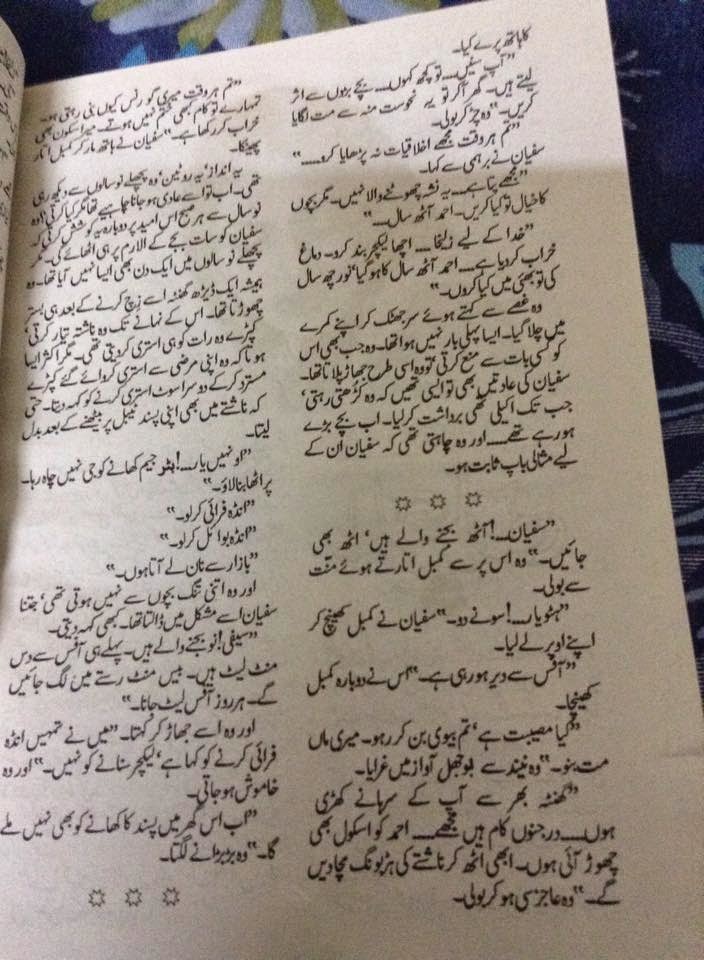 کا ہاتھ پرے کیا۔
”آپ سفین.... تو کچھ کہوں.... بچے بڑوں سے اثر
لیتے ہیں۔ گھر آکر تو یہ نحوست منہ سے مت لگایا
کریں۔“ وہ چڑ کر بولی۔
”تم ہر وقت مجھے اخلاقیات نہ پڑھایا کرو.....“
سفیان نے برہمی سے کہا۔
”مجھے پتا ہے.... یہ نشہ چھوٹنے والا نہیں۔ مگر بچوں
کا خیال تو کیا کریں۔ احمد آٹھ سال....“
”خدا کے لیے زلیخا.... اچھا لیکچر بند کرو۔ دماغ
خراب کردیا ہے.... احمد آٹھ سال کا ہو گیا‘ نور چھ سال
کی تو بھئی میں کیا کروں۔“
وہ غصے سے کہتے ہوئے سر جھٹک کر اپنے کمرے
میں چلا گیا۔ ایسا پہلی بار نہیں ہوا تھا۔ وہ جب بھی اس
کو کسی بات سے منع کرتی‘ تو وہ اسی طرح جھاڑ پلاتا تھا۔
سفیان کی عادتیں بھی تو ایسی تھیں کہ وہ کڑھتی رہتی‘
جب تک اکیلی تھی برداشت کرلیا۔ اب بچے بڑے
ہو رہے تھے.... اور وہ چاہتی تھی کہ سفیان ان کے
لیے مثالی باپ ثابت ہو۔
”سفیان....! آٹھ بجنے والے ہیں‘ اٹھ بھی
جائیں۔“ وہ اس پر سے کمبل اتارتے ہوئے منت
سے بولی۔
”ہٹو یار....! سونے دو۔“ سفیان نے کمبل کھینچ کر
اپنے اوپر لے لیا۔
”آفس سے دیر ہو رہی ہے۔“ اس نے دوبارہ کمبل
کھینچا۔
”کیا مصیبت ہے‘ تم بیوی بن کر رہو۔ میری ماں
مت بنو۔“ وہ نیند سے بوجھل آواز میں غرایا۔
”گھنٹہ بھر سے آپ کے سرہانے کھڑی
ہوں.... درجنوں کام ہیں مجھے.... احمد کو اسکول بھی
چھوڑ آئی ہوں۔ ابھی اٹھ کر ناشتے کی ہڑبونگ مچادیں
گے۔“ وہ عاجز سی ہو کر بولی۔
”تم ہر وقت میری گورنس کیوں بنی رہتی ہو۔
تمہارے تو کام کبھی ختم نہیں ہوتے۔ میرا سکون بھی
خراب کر رکھا ہے۔“ سفیان نے ہاتھ مار کر کمبل اتار
پھینکا۔
یہ انداز‘ یہ روٹین‘ وہ پچھلے نو سالوں سے دیکھ رہی
تھی۔ اب تو اسے عادی ہو جانا چاہیے تھا مگر کیا کرتی‘ وہ
نو سال سے ہر صبح اس امید پر دوبارہ یہ کوشش کرتی کہ
سفیان کو سات بجے کے الارم پر ہی اٹھائے گی۔ مگر
پچھلے نو سالوں میں ایک دن بھی ایسا نہیں آیا تھا۔ وہ
ہمیشہ ایک ڈیڑھ گھنٹہ اسے زچ کرنے کے بعد ہی بستر
چھوڑتا تھا۔ اس کے نہانے تک وہ ناشتہ تیار کرتی‘
کپڑے وہ رات کو ہی استری کر دیتی تھی۔ مگر اکثر ایسا
ہوتا کہ وہ اپنی مرضی سے استری کروائے گئے کپڑے
مسترد کر کے دوسرا سوٹ استری کرنے کو کہہ دیتا۔ حتیٰ
کہ ناشتے میں بھی اپنی پسند ٹیبل پر بیٹھنے کے بعد بدل
لیتا۔
”او نہیں یار....! بٹر جیم کھانے کو جی نہیں چاہ رہا۔
پراٹھا بنا لاؤ۔“
”انڈہ فرائی کرلو۔“
”انڈہ بوائل کرلو۔“
”بازار سے نان لے آتا ہوں۔“
اور وہ اتنی تنگ بچوں سے نہیں ہوتی تھی‘ جتنا
سفیان اسے مشکل میں ڈالتا تھا۔ کبھی کہہ دیتی۔
”سیفی! نو بجنے والے ہیں۔ پہلے ہی آفس سے دس
منٹ لیٹ ہیں۔ بیس منٹ رستے میں لگ جائیں
گے۔ ہر روز آفس لیٹ جانا۔“
اور وہ اسے جھاڑ کر کہتا۔ ”میں نے تمہیں انڈہ
فرائی کرنے کو کہا ہے‘ لیکچر سنانے کو نہیں۔“ اور وہ
خاموش ہو جاتی۔
”اب اس گھر میں پسند کا کھانے کو بھی نہیں ملے
گا۔“ وہ بڑبڑانے لگتا۔